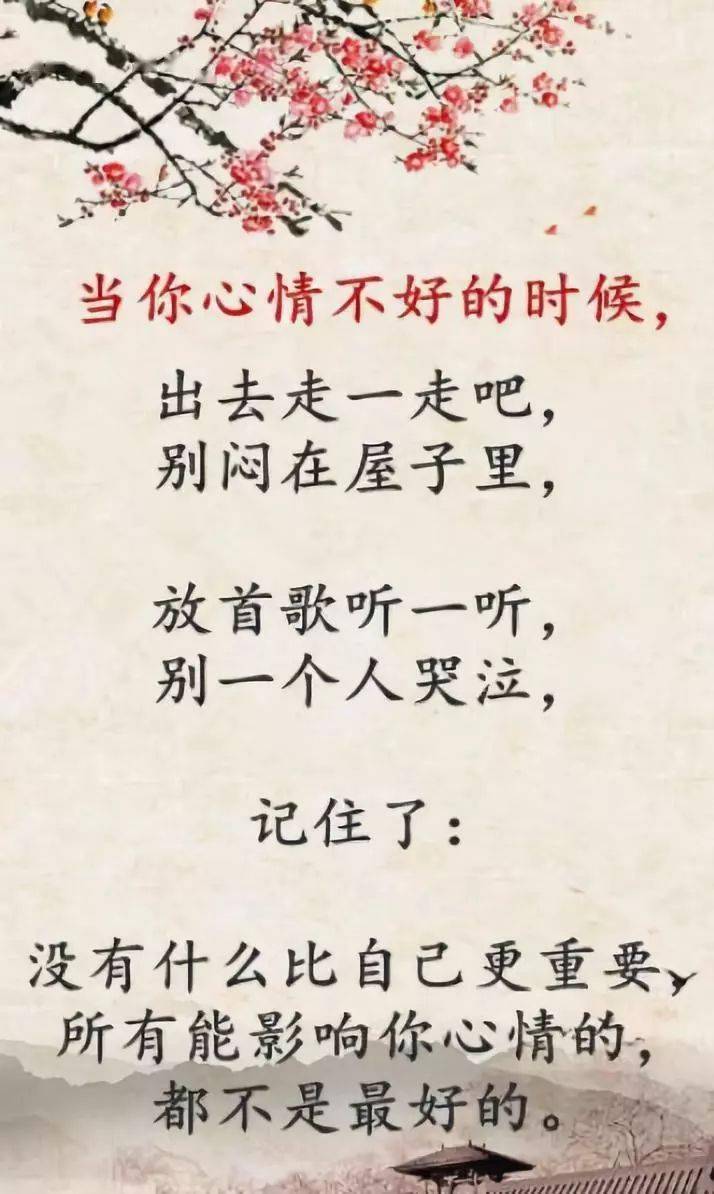 当你心情不好的时候，
出去走一走吧，
别闷在屋子里，
放首歌听一听，
别一个人哭泣，
记住了：
没有什么比自己更重要，
所有能影响你心情的，
都不是最好的。